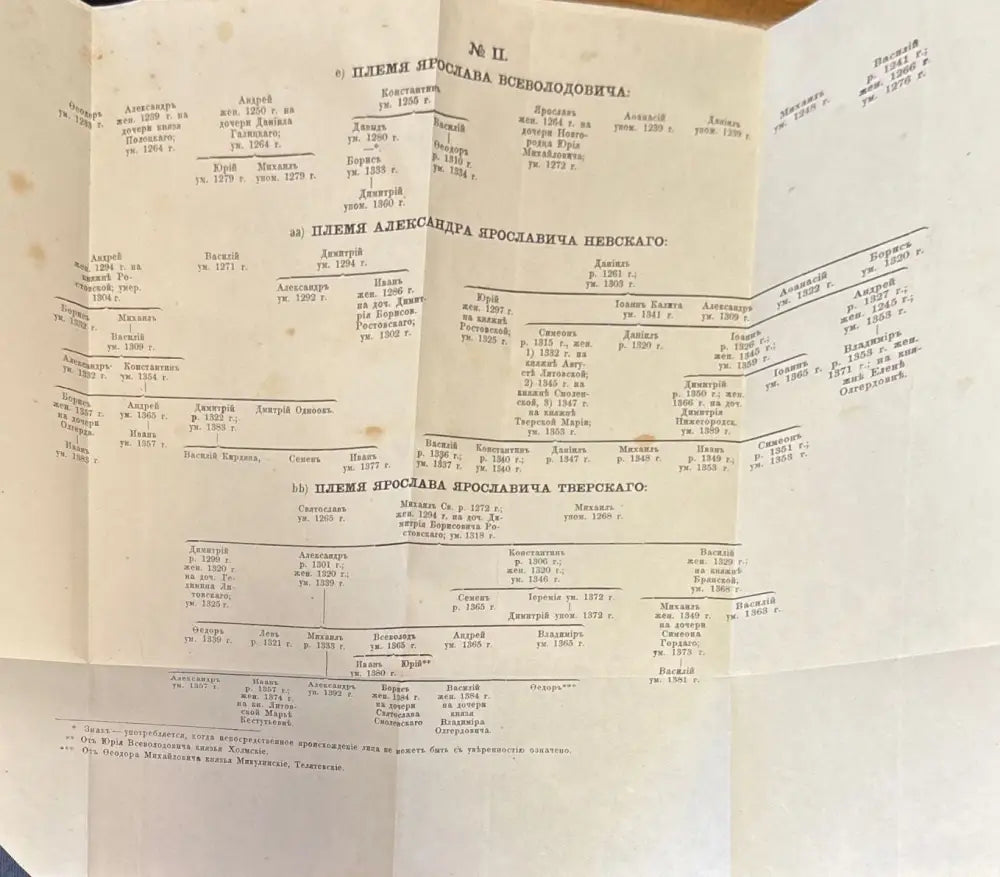 № II.
е) ПЛЕМЯ ЯРОСЛАВА ВСЕВОЛОДОВИЧА:
Ѳеодоръ
ум. 1233 г.
Александръ
жен. 1239 г. на
дочери князя
Полоцкаго;
ум. 1264 г.
Андрей
жен. 1250 г. на
дочери Даніила
Галицкаго;
ум. 1264 г.
Юрій
ум. 1279 г.
Михаилъ
упом. 1279 г.
Константинъ
ум. 1255 г.
Давидъ
ум. 1280 г.
—*.
Борисъ
ум. 1333 г.
Димитрій
упом. 1360 г.
Василій
Ѳеодоръ
р. 1310 г.
ум. 1334 г.
Ярославъ
жен. 1264 г. на
дочери Новго-
родца Юрія
Михайловича;
ум. 1272 г.
Аѳанасій
упом. 1239 г.
Даніилъ
упом. 1239 г.
Михаилъ
ум. 1248 г.
Василій
р. 1241 г.;
жен. 1266 г.
ум. 1276 г.
аа) ПЛЕМЯ АЛЕКСАНДРА ЯРОСЛАВИЧА НЕВСКАГО:
Андрей
жен. 1294 г. на
княжнѣ Ро-
стовской; умер.
1304 г.
Борисъ
ум.
Михаилъ
Василій
ум. 1309 г.
Александръ
ум. 1332 г.
Константинъ
ум. 1354 г.
Борисъ
жен. 1357 г.
на дочери
Олгерда.
Иванъ
ум. 1383 г.
Андрей
ум. 1365 г.
Иванъ
ум. 1357 г.
Димитрій
р. 1322 г.;
ум. 1383 г.
Дмитрій Одноок.
Василій Кирдяпа,
Сенеъ
Иванъ
ум. 1377 г.
Василій
ум. 1271 г.
Димитрій
ум. 1294 г.
Александръ
ум. 1292 г.
Иванъ
жен. 1286 г.
на доч. Димит-
рія Борисов.
Ростовскаго;
ум. 1302 г.
Даніилъ
р. 1261 г.;
ум. 1303 г.
Юрій
жен. 1297 г.
на княжнѣ
Ростовской;
ум. 1325 г.
Іоаннъ Калита
ум. 1341 г.
Александръ
ум. 1309 г.
Аѳанасій
ум. 1322 г.
Борисъ
ум. 1320 г.
Симеонъ
р. 1315 г., жен.
1) 1332 г. на
княжнѣ Авгу-
стѣ Литовской;
2) 1345 г. на
княжнѣ Смолен-
ской, 3) 1347 г.
на княжнѣ
Тверской Марія;
ум. 1353 г.
Даніилъ
р. 1320 г.
Іоаннъ
р. 1326 г.;
жен. 1345 г.;
ум. 1359 г.
Андрей
р. 1327 г.;
жен. 1245 г.;
ум. 1353 г.
Димитрій
р. 1350 г.; жен.
1366 г. на доч.
Димитрія
Нижегородск.
ум. 1389 г.
Іоаннъ
ум. 1365 г.
Владиміръ
р. 1353 г. жен.
1371 г.; на кня-
жнѣ Еленѣ
Олгердовнѣ.
Василій
р. 1336 г.;
ум. 1337 г.
Константинъ
р. 1340 г.;
ум. 1340 г.
Даніилъ
р. 1347 г.
Михаилъ
р. 1348 г.
Иванъ
р. 1349 г.;
ум. 1353 г.
Симеонъ
р. 1351 г.;
ум. 1353 г.
bb) ПЛЕМЯ ЯРОСЛАВА ЯРОСЛАВИЧА ТВЕРСКАГО:
Святославъ
ум. 1265 г.
Михаилъ Св. р. 1272 г.;
жен. 1294 г. на доч. Ди-
митрія Борисовича Ро-
стовскаго; ум. 1318 г.
Михаилъ
упом. 1268 г.
Димитрій
р. 1299 г.
жен. 1320 г.
на доч. Ге-
димина Ли-
товскаго;
ум. 1325 г.
Александръ
р. 1301 г.;
жен. 1320 г.;
ум. 1339 г.
Константинъ
р. 1306 г.;
жен. 1320 г.;
ум. 1346 г.
Василій
жен. 1329 г.;
на княжнѣ
Брянской;
ум. 1368 г.
Семенъ
р. 1365 г.
Іеремія ум. 1372 г.
Димитрій упом. 1372 г.
Михаилъ
жен. 1349 г.
на дочери
Симеона
Гордаго;
ум. 1373 г.
Василій
ум. 1381 г.
Василій
ум. 1363 г.
Ѳедоръ
ум. 1339 г.
Левъ
р. 1321 г.
Михаилъ
р. 1333 г.
Всеволодъ
ум. 1365 г.
Андрей
ум. 1365 г.
Владиміръ
ум. 1365 г.
Иванъ
ум. 1380 г.
Юрій**
Александръ
ум. 1357 г.
Иванъ
р. 1357 г.;
жен. 1374 г.
на кн. Литов-
ской Марьѣ
Кестутьевнѣ.
Александръ
ум. 1392 г.
Борисъ
жен. 1384 г.
на дочери
Святослава
Смоленскаго
Василій
жен. 1384 г.
на дочери
князя
Владиміра
Олгердовича.
Ѳедоръ***
* Знакъ — употребляется, когда непосредственное происхожденіе лица не можетъ быть съ увѣренностію означено.
** Отъ Юрія Всеволодовича князья Холмскіе.
*** Отъ Ѳеодора Михайловича князья Микулинскіе, Телятевскіе.